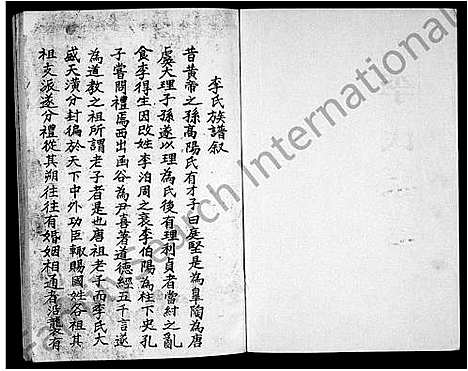 李氏族譜叙
昔黄帝之孫高陽氏有才子曰庭堅是為皐陶為唐
虞大理子孫遂以理為氏後有理利貞者當紂之亂
食李得生因改姓李泊周之衰李伯陽為柱下史孔
子嘗問禮焉西出函谷為尹喜著道德經五千言遂
為道教之祖所謂老子者是也唐祖老子而李氏大
盛天潢分封徧於天下中外功臣輙賜國姓各祖其
祖支派遂分禮從其朔往往有婚姻相通者沿襲有
Search International